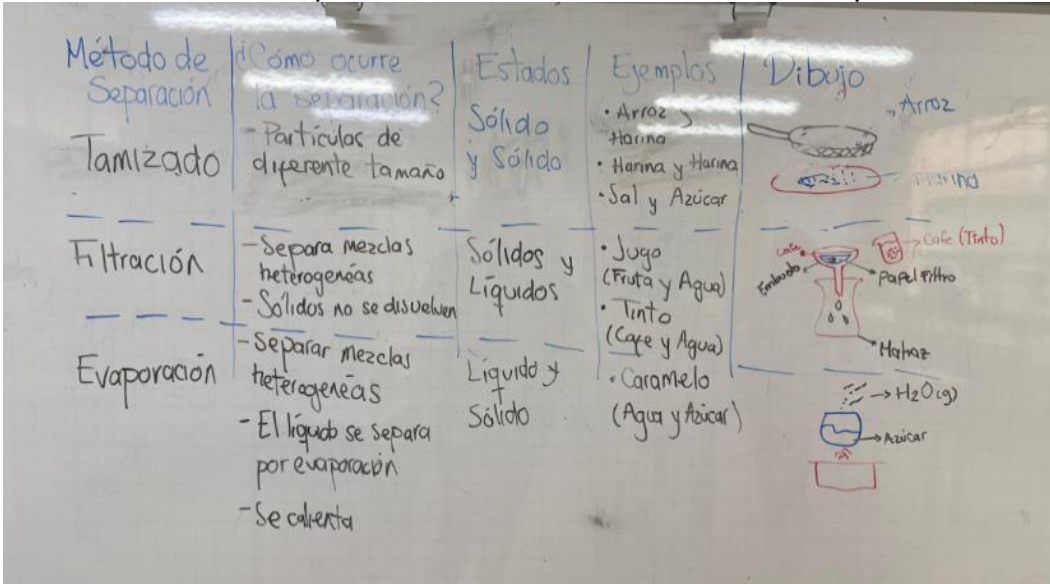 Método de
Separación
¿Cómo ocurre
la separación?
Estados
Ejemplos
Dibujo
Tamizado
- Partículas de
diferente tamaño
Sólido
y Sólido
• Arroz y
Harina
• Harina y Harina
• Sal y Azúcar
Arroz
Harina
Filtración
- Separa mezclas
heterogenéas
- Sólidos no se disuelven
Sólidos y
Líquidos
• Jugo
(Fruta y Agua)
• Tinto
(Cafe y Agua)
Cafe
Embudo
Cafe (Tinto)
Papel Filtro
Matraz
Evaporación
- Separar mezclas
heterogenéas
- El líquido se separa
por evaporación
- Se calienta
Líquido y
Sólido
• Caramelo
(Agua y Azúcar)
H2O(g)
Azúcar